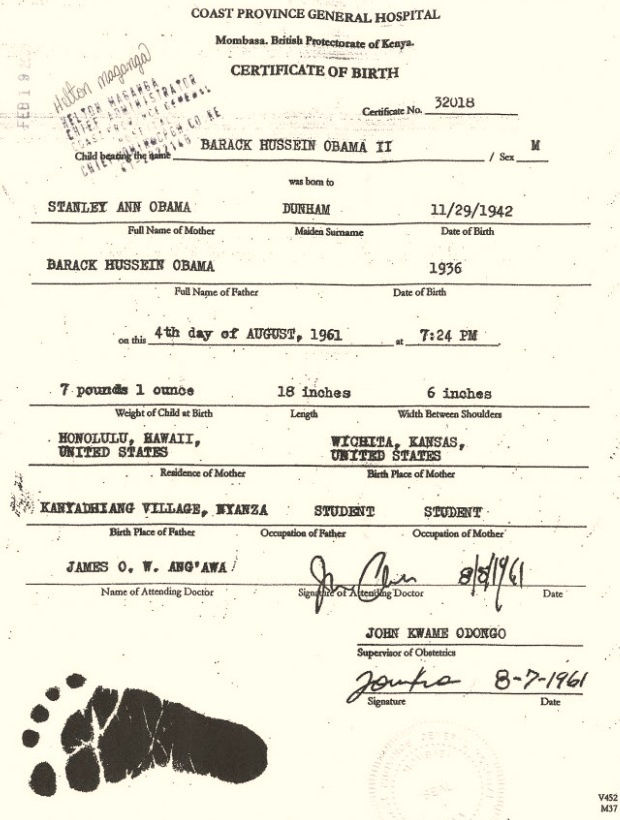 COAST PROVINCE GENERAL HOSPITAL
Mombasa. British Protectorate of Kenya.
CERTIFICATE OF BIRTH
FEB 19
Helton Maganga
HELTON MAGANGA
CHIEF ADMINISTRATOR
COAST PROVINCE GENERAL
Certificate No. 32018
Child bearing the name BARACK HUSSEIN OBAMA II / Sex M
was born to
STANLEY ANN OBAMA DUNHAM 11/29/1942
Full Name of Mother Maiden Surname Date of Birth
BARACK HUSSEIN OBAMA 1936
Full Name of Father Date of Birth
on this 4th day of AUGUST, 1961 at 7:24 PM
7 pounds 1 ounce 18 inches 6 inches
Weight of Child at Birth Length Width Between Shoulders
HONOLULU, HAWAII, WICHITA, KANSAS,
UNITED STATES UNITED STATES
Residence of Mother Birth Place of Mother
KANYADHIANG VILLAGE, NYANZA STUDENT STUDENT
Birth Place of Father Occupation of Father Occupation of Mother
JAMES O. W. ANG'AWA 8/8/1961
Name of Attending Doctor Signature of Attending Doctor Date
JOHN KWAME ODONGO
Supervisor of Obstetrics
8-7-1961
Signature Date
V452
M37